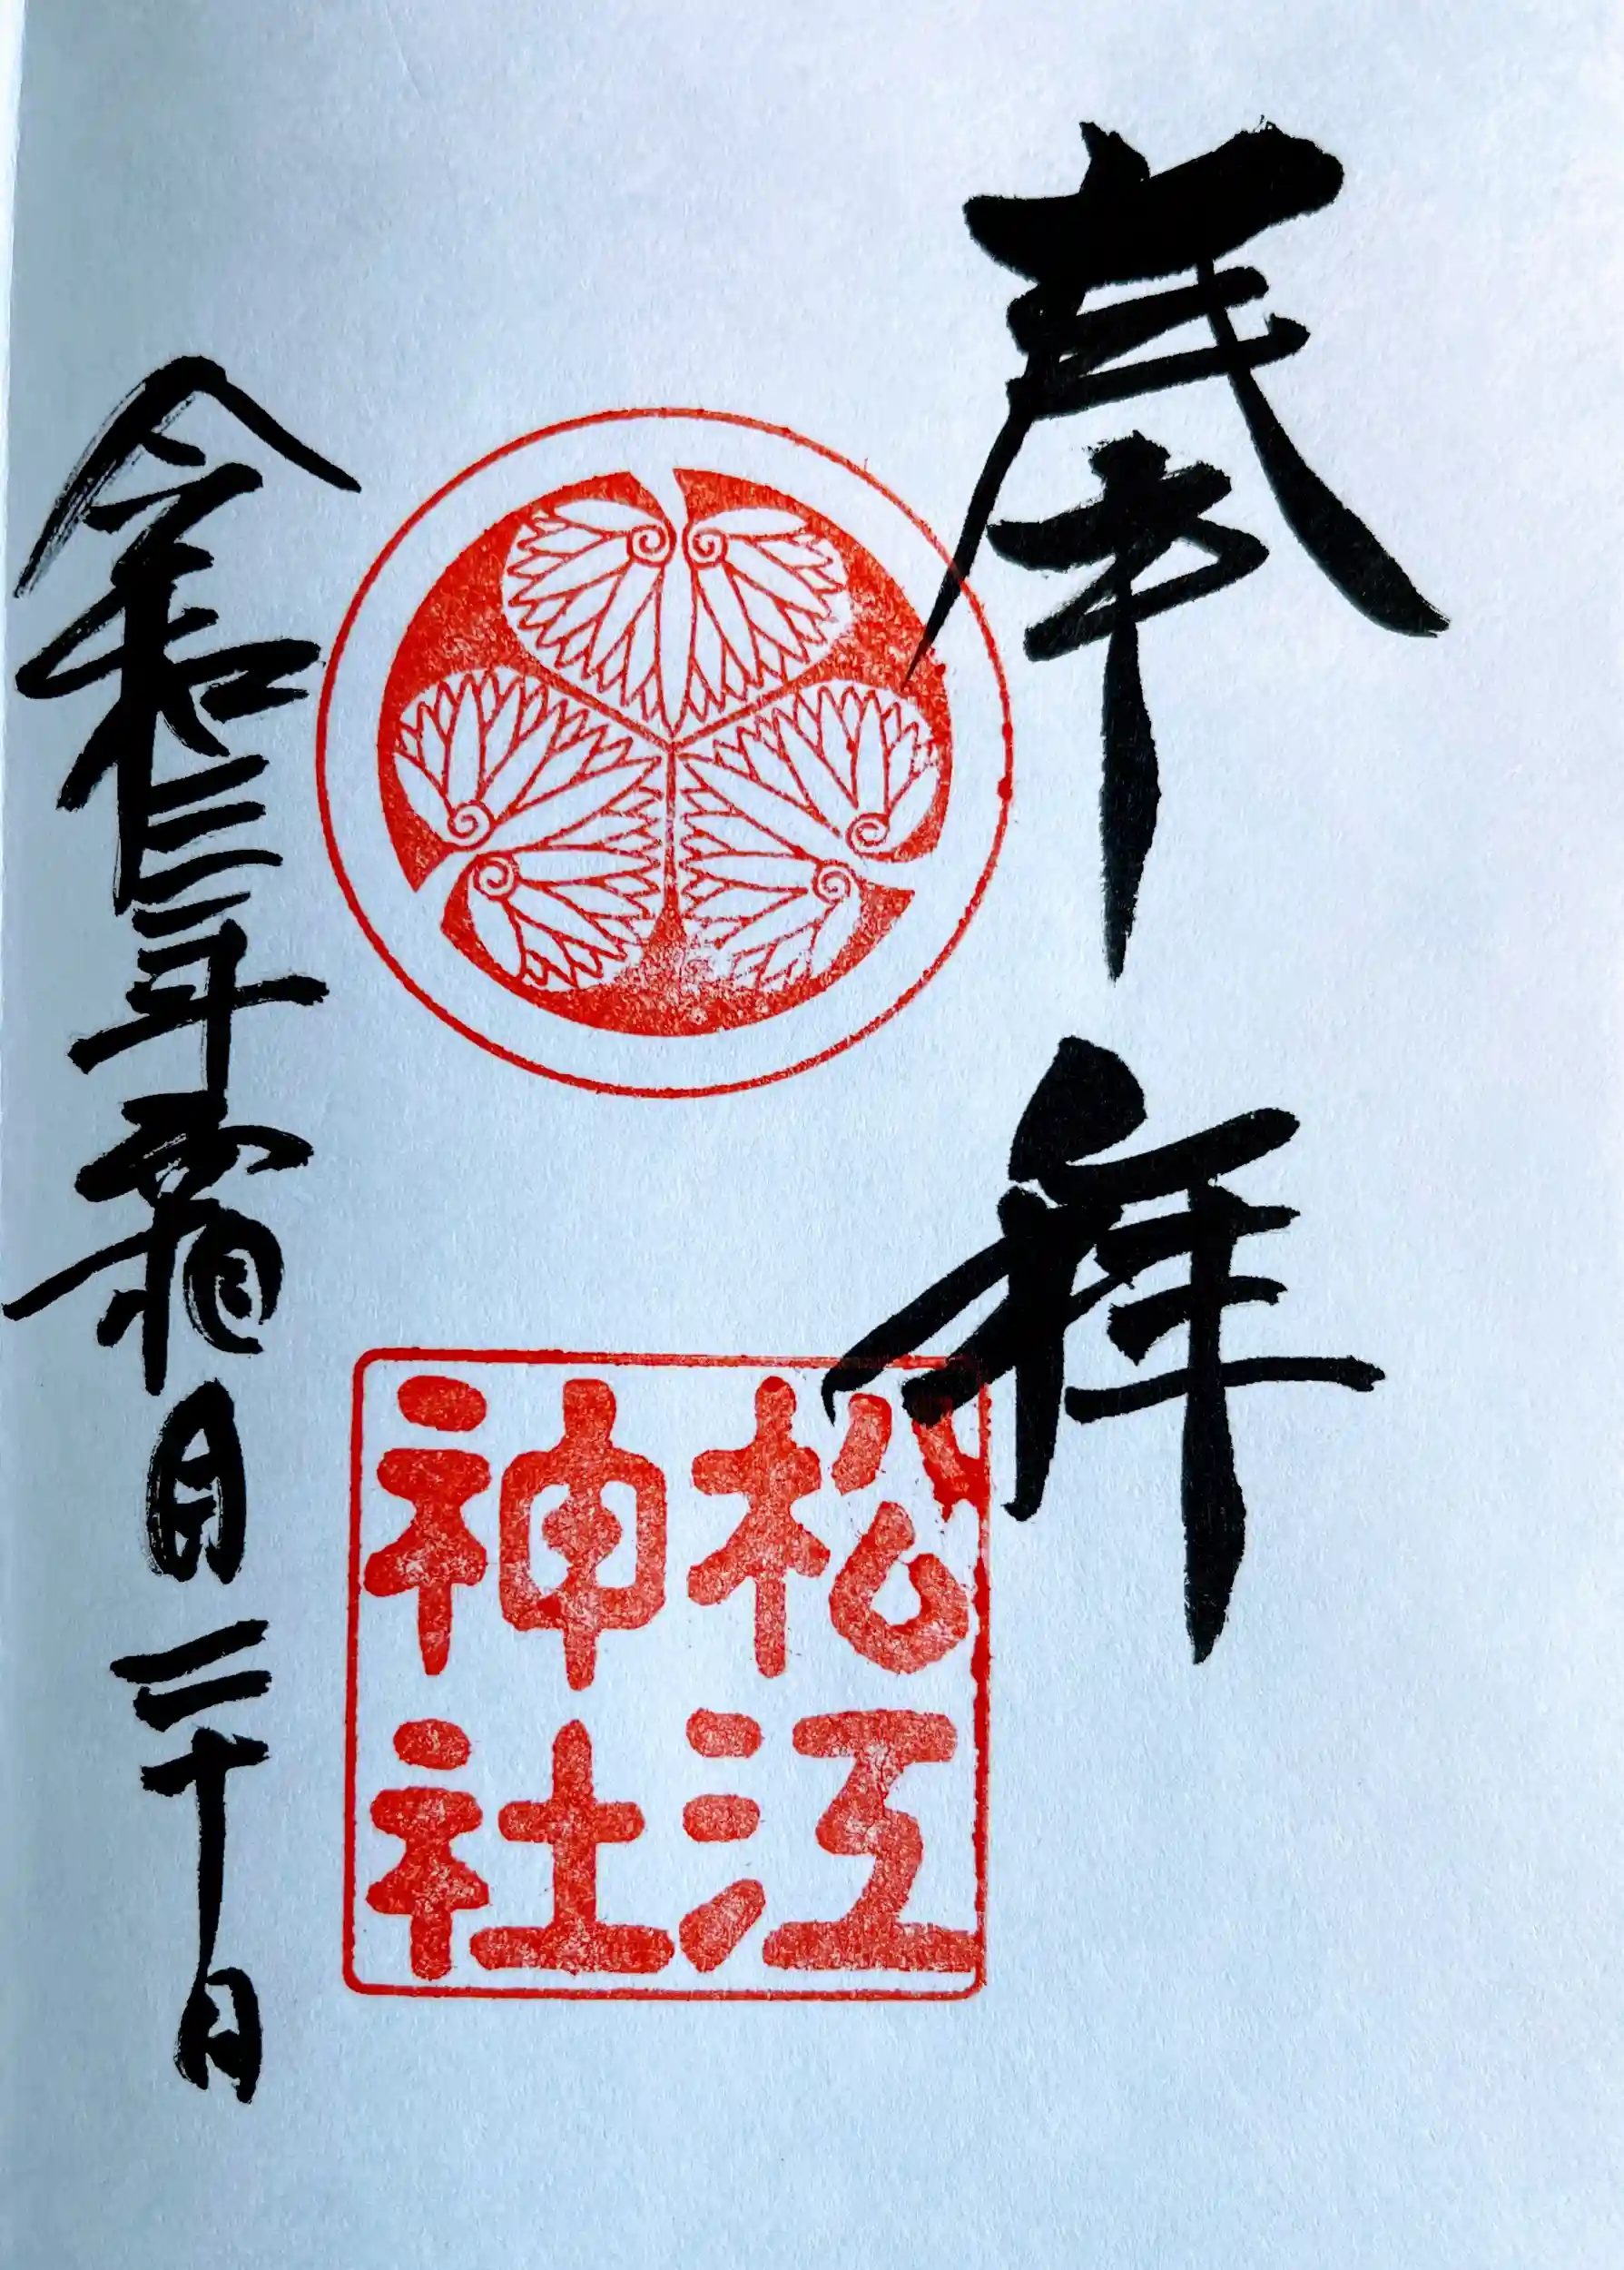 奉拝
松江
神社
令和三年霜月二十日